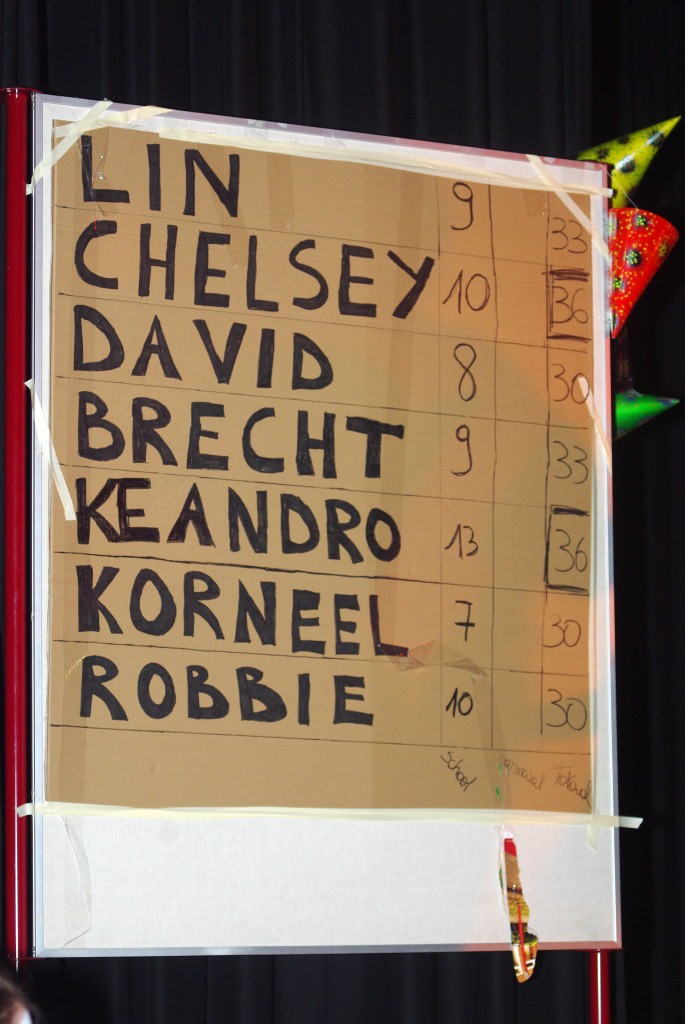 LIN 9 33
CHELSEY 10 36
DAVID 8 30
BRECHT 9 33
KEANDRO 13 36
KORNEEL 7 30
ROBBIE 10 30
School carnaval Totaal